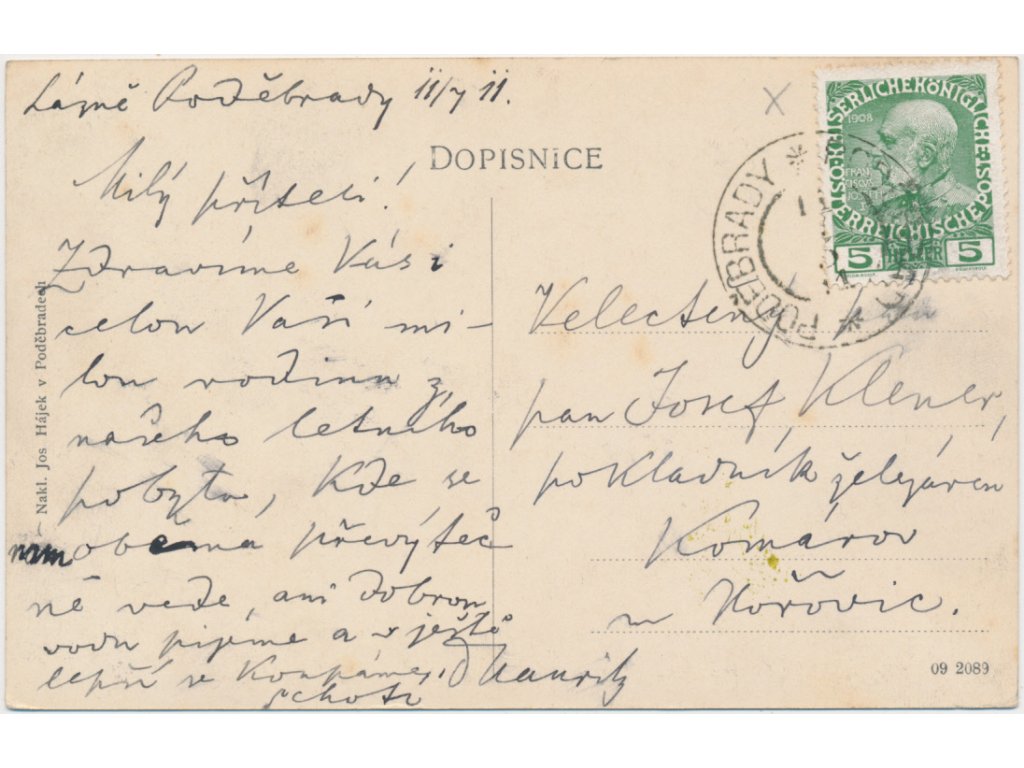 Lázně Poděbrady 11/7 11.
DOPISNICE
Milý příteli!
Zdravíme Vás i
celou Vaší mi-
lou rodinu z
našeho letního
pobytu, kde se
nám oběma převýteč
ně vede, ani dobrou
vodu pijeme a v ještě
lepší se koupáme.
Nakl. Jos Hájek v Poděbradech
1908
KAISERLICHE KÖNIGLICHE
ÖSTERREICHISCHE POST
FRAN
CISCVS
JOSEPH I
5 HELLER 5
PODĚBRADY
Velectěný
pan Josef Klener,
pokladník železáren
Komárov
u Hořovic.
09 2089